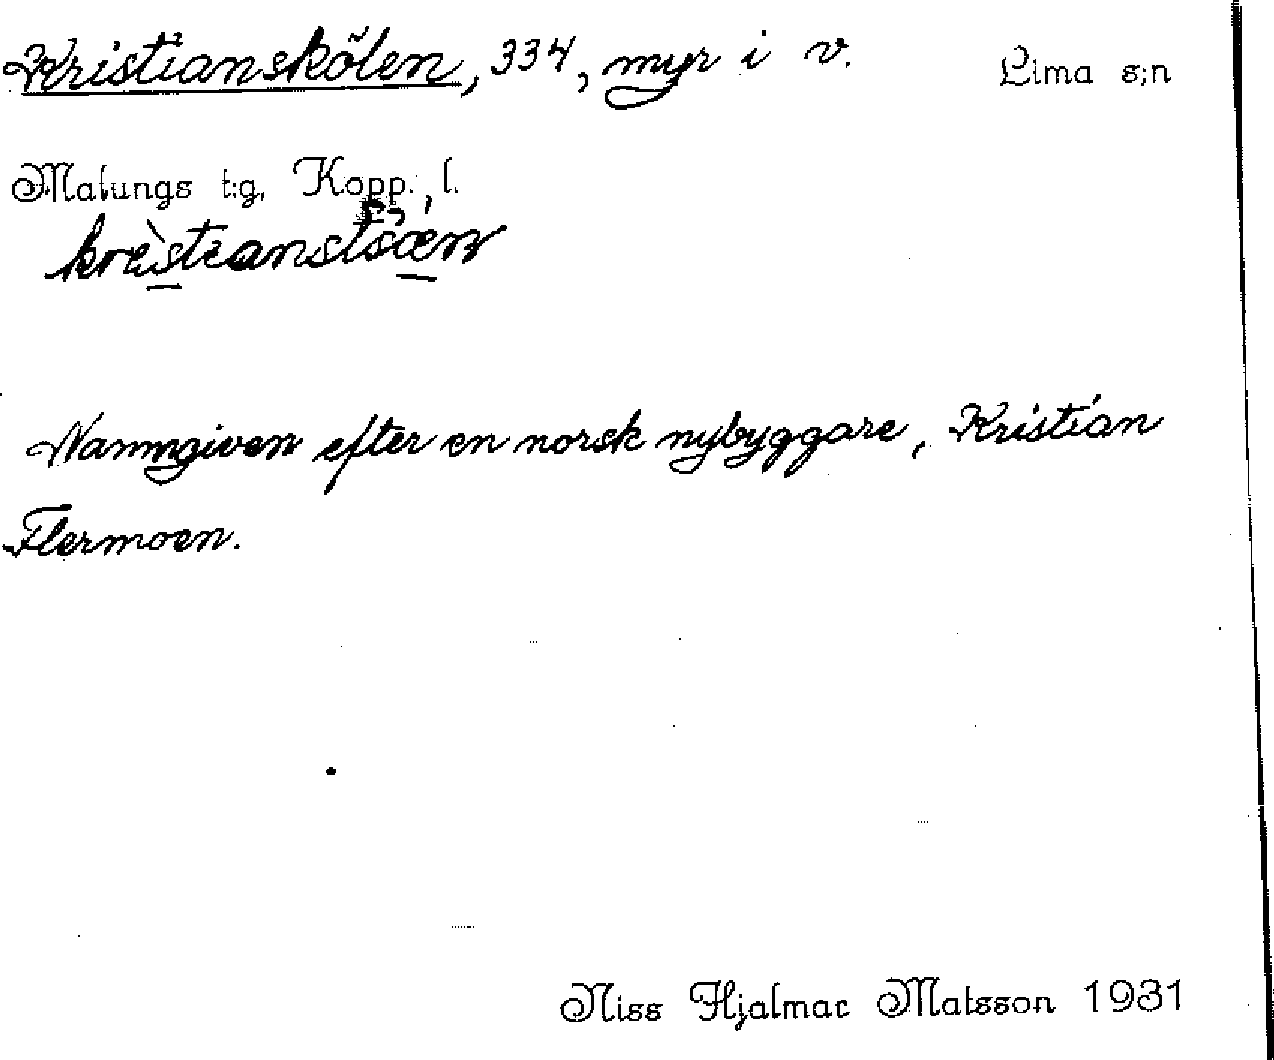 Kristianskölen, 334, myr i v. Lima s;n
Malungs t:g, Kopp., l.
krèstianstsæn
Namngiven efter en norsk nybyggare, Kristian
Flermoen.
Niss Hjalmar Matsson 1931